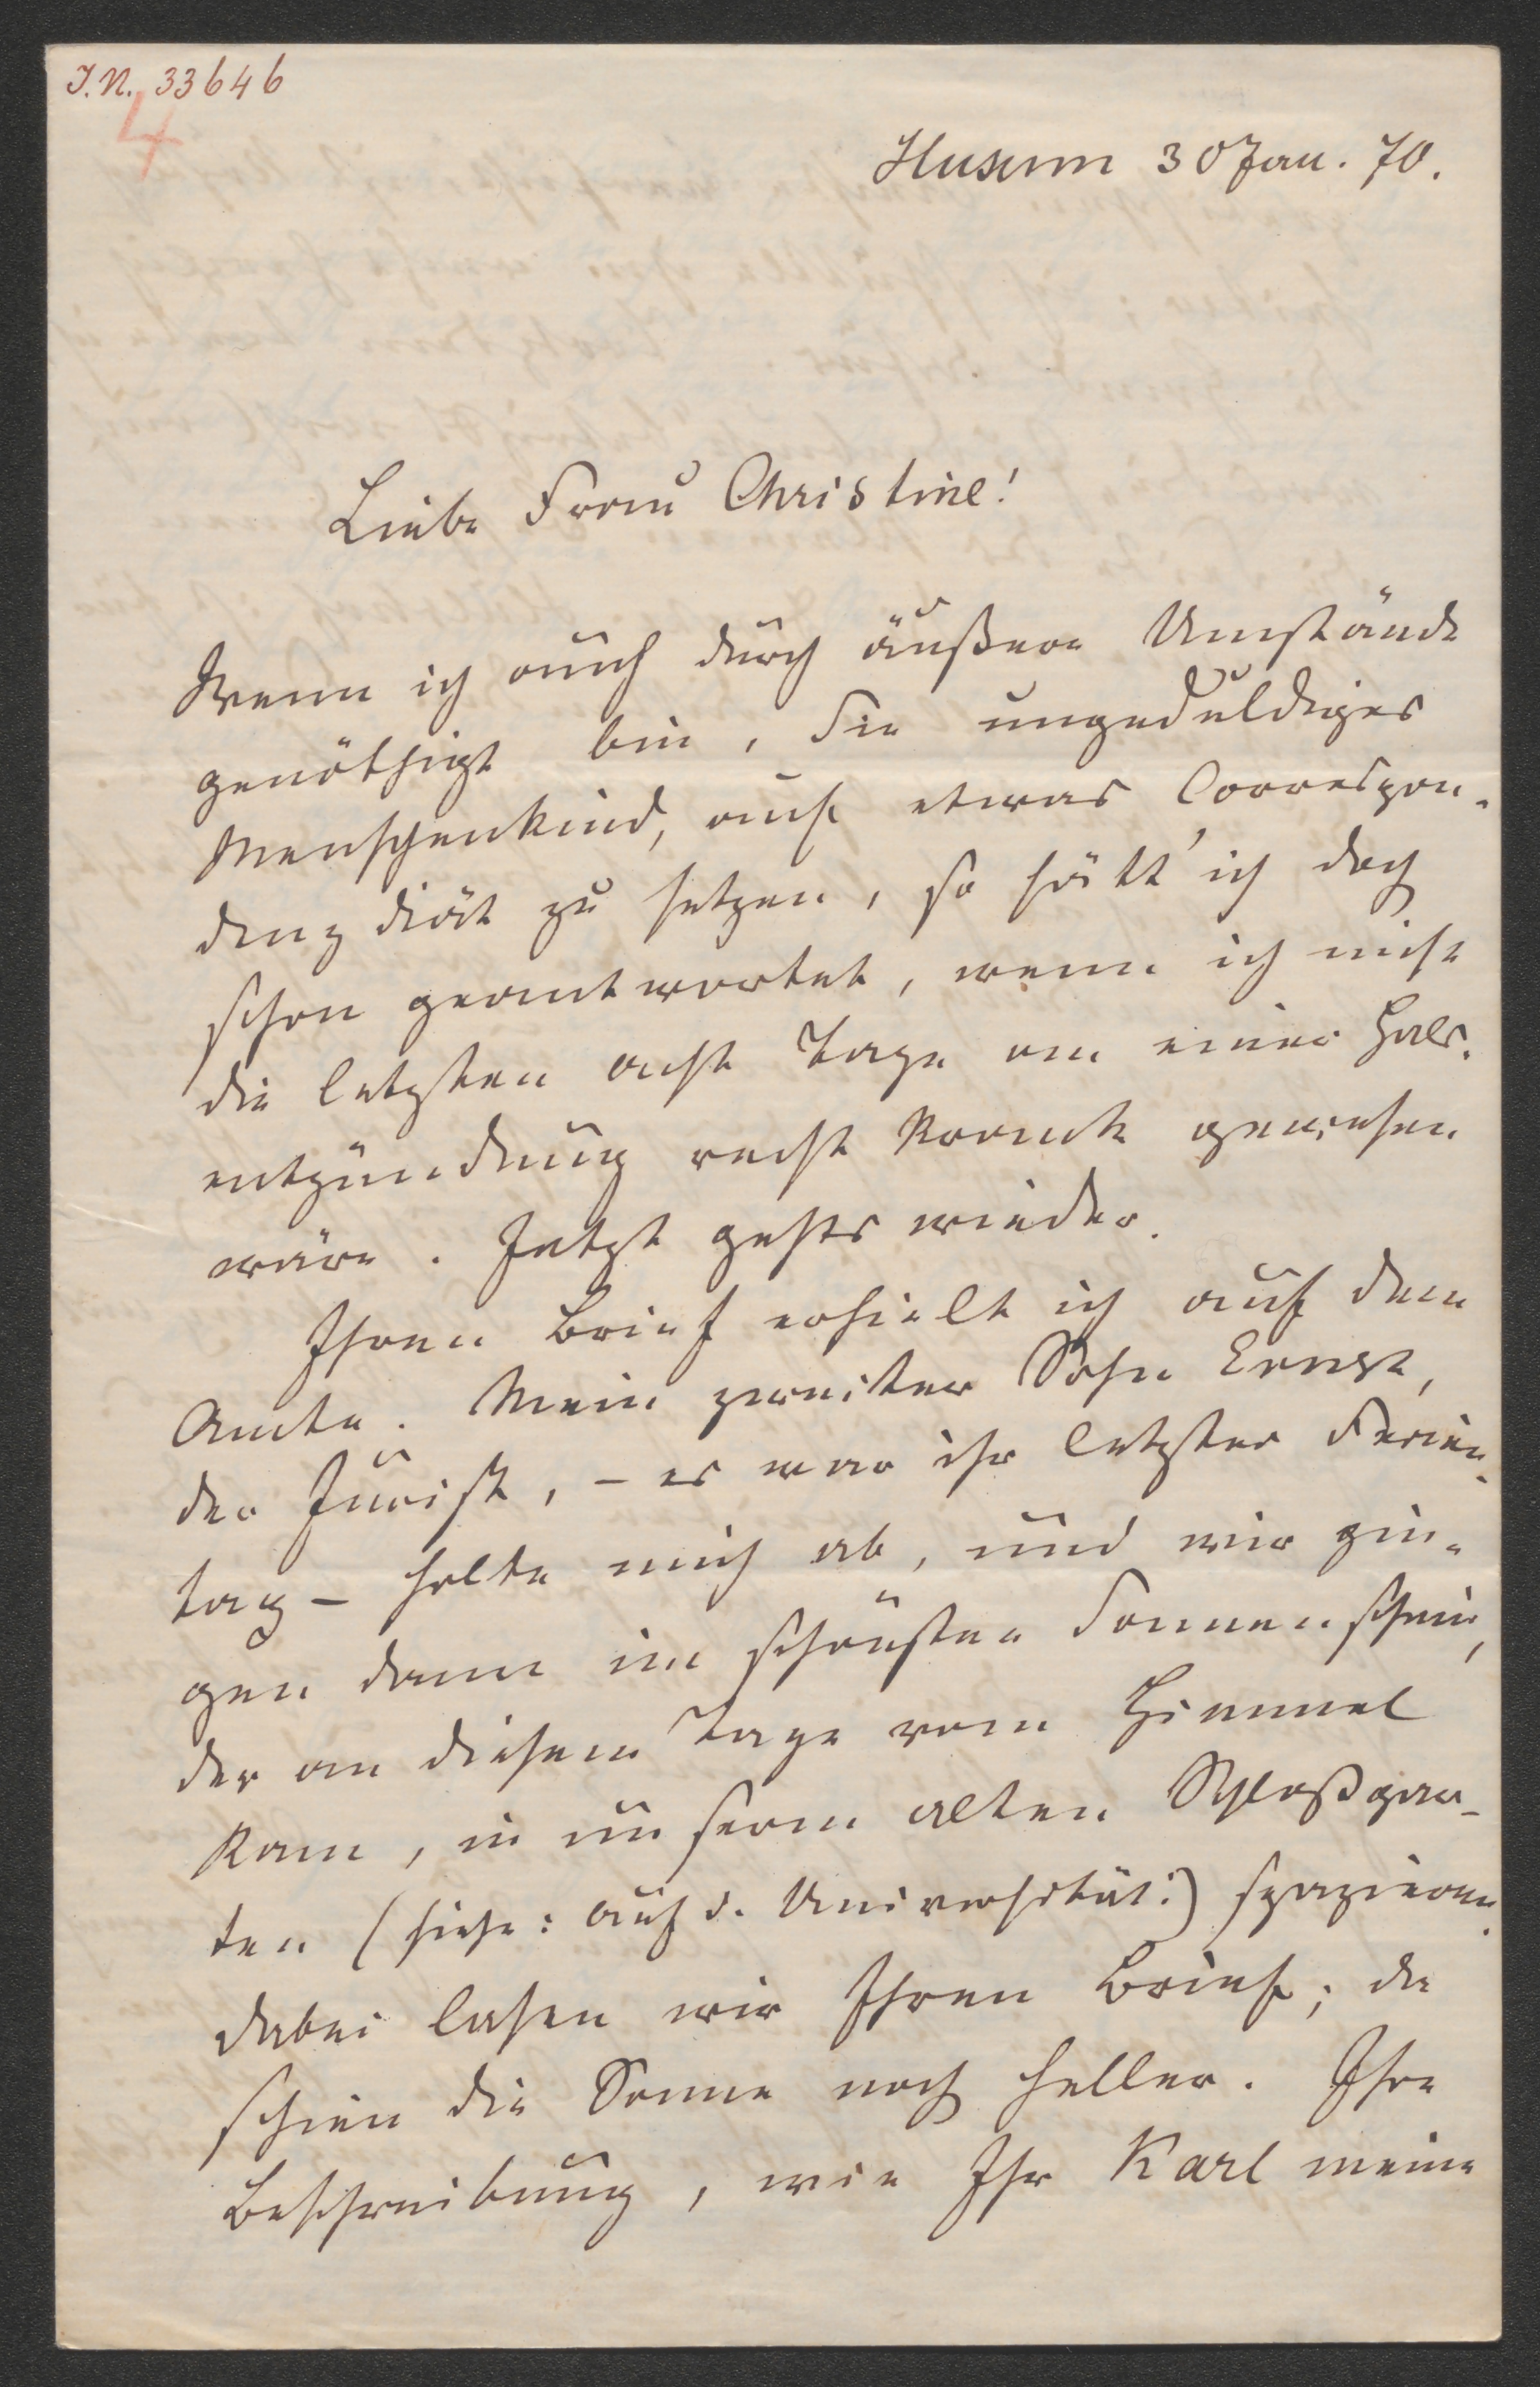 I.N. 33646
4
Husum 30 Jan. 70.
Liebe Frau Christine!
Wenn ich auch durch äußere Umstände
genöthigt bin, Sie ungeduldiges
Menschenkind, auf etwas Correspon-
denzdiät zu setzen, so hätt' ich doch
schon geantwortet, wenn ich nicht
die letzten acht Tage an einer Hals-
entzündung recht krank gewesen
wäre. Jetzt gehts wieder.
Ihren Brief erhielt ich auf dem
Amte. Mein zweiter Sohn Ernst,
der Jurist, – es war ihr letzter Ferien-
tag – holte mich ab, und wir gin-
gen dann im schönsten Sonnenschein,
der an diesem Tage vom Himmel
kam, in unserm alten Schloßgar-
ten (siehe: Auf d. Universität!) spazieren.
dabei lasen wir Ihren Brief; da
schien die Sonne noch heller. Ihre
Beschreibung, wie Ihr Karl meine